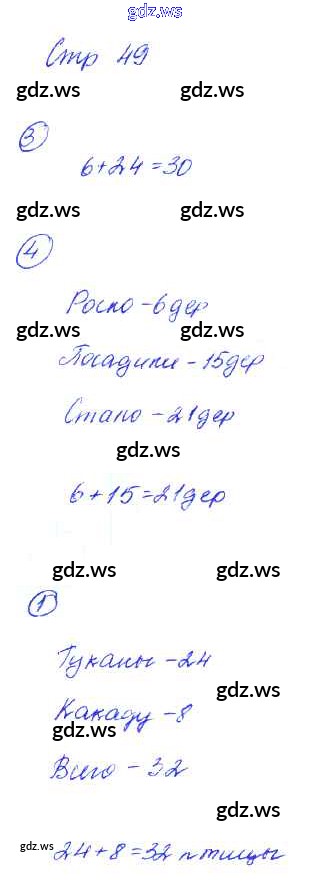 gdz.ws
Стр 49
gdz.ws gdz.ws
3
6+24=30
gdz.ws gdz.ws
4
Росло -6дер
gdz.ws gdz.ws
Посадили -15дер
Стало -21дер
gdz.ws
6+15=21дер
gdz.ws gdz.ws
1
Туканы -24
gdz.ws
Какаду -8
gdz.ws
Всего -32
gdz.ws
gdz.ws
24+8=32 птицы